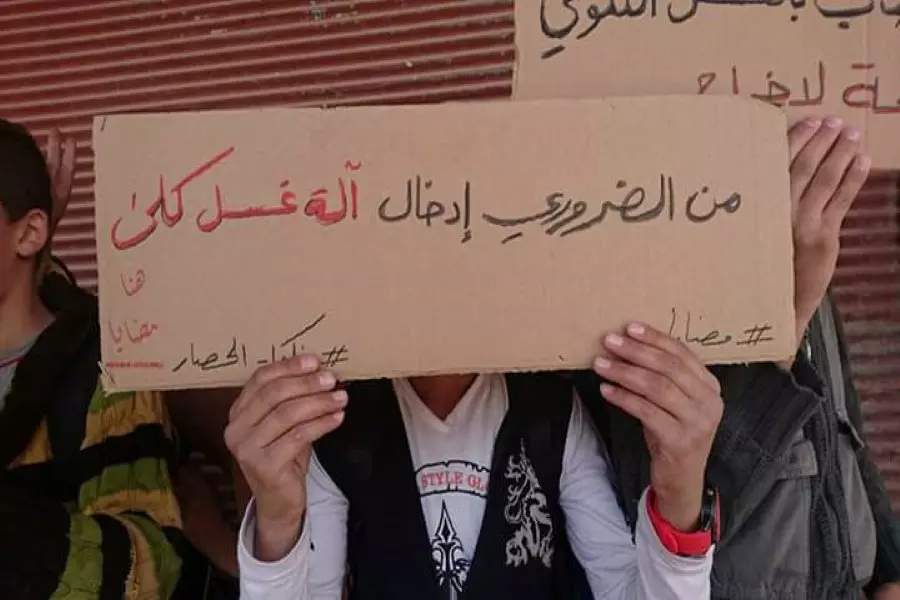 الكلوي
لاخراج
من الضروري إدخال آلة غسل كلى
هنا
مضايا
#مضايا
#فكوا_الحصار
STYLE